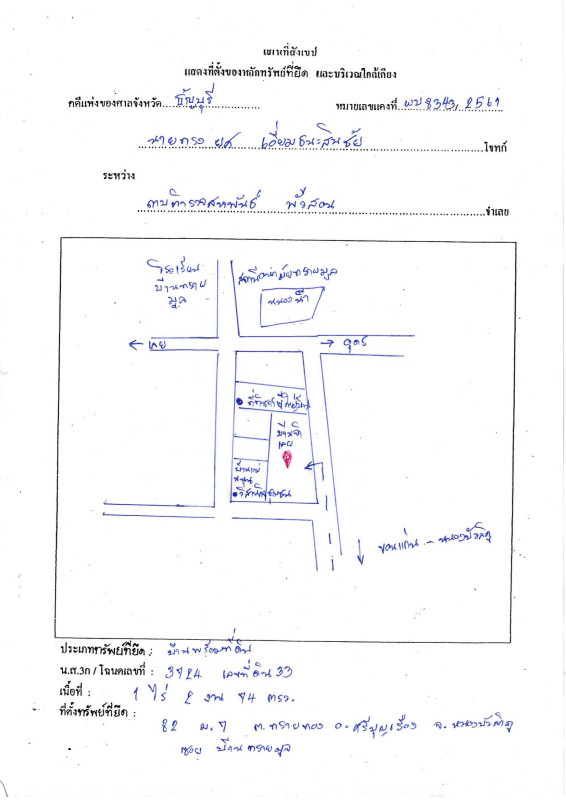 แผนที่สังเขป
แสดงที่ตั้งของหลักทรัพย์ที่ยึด และบริเวณใกล้เคียง
คดีแพ่งของศาลจังหวัด ธัญบุรี หมายเลขแดงที่ ผบ 8343, 2561
นายทรงยศ เอี่ยมธนะสินชัย โจทก์
ระหว่าง
ดาบตำรวจสหพันธ์ พั้วสอน จำเลย
โรงเรียน
บ้านทราย
มูล
สถานีอนามัยทรายมูล
หนองน้ำ
← เลย
→ อุดร
บ้าน
วิสาหกิจชุมชน
ขอนแก่น - หนองบัวลำภู
ประเภททรัพย์ที่ยึด : บ้านพร้อมที่ดิน
น.ส.3ก / โฉนดเลขที่ : 3724 เลขที่ดิน 33
เนื้อที่ : 1 ไร่ 2 งาน 74 ตรว.
ที่ตั้งทรัพย์ที่ยึด :
82 ม.7 ต.ทรายทอง อ.ศรีบุญเรือง จ.หนองบัวลำภู
ซอย บ้านทรายมูล